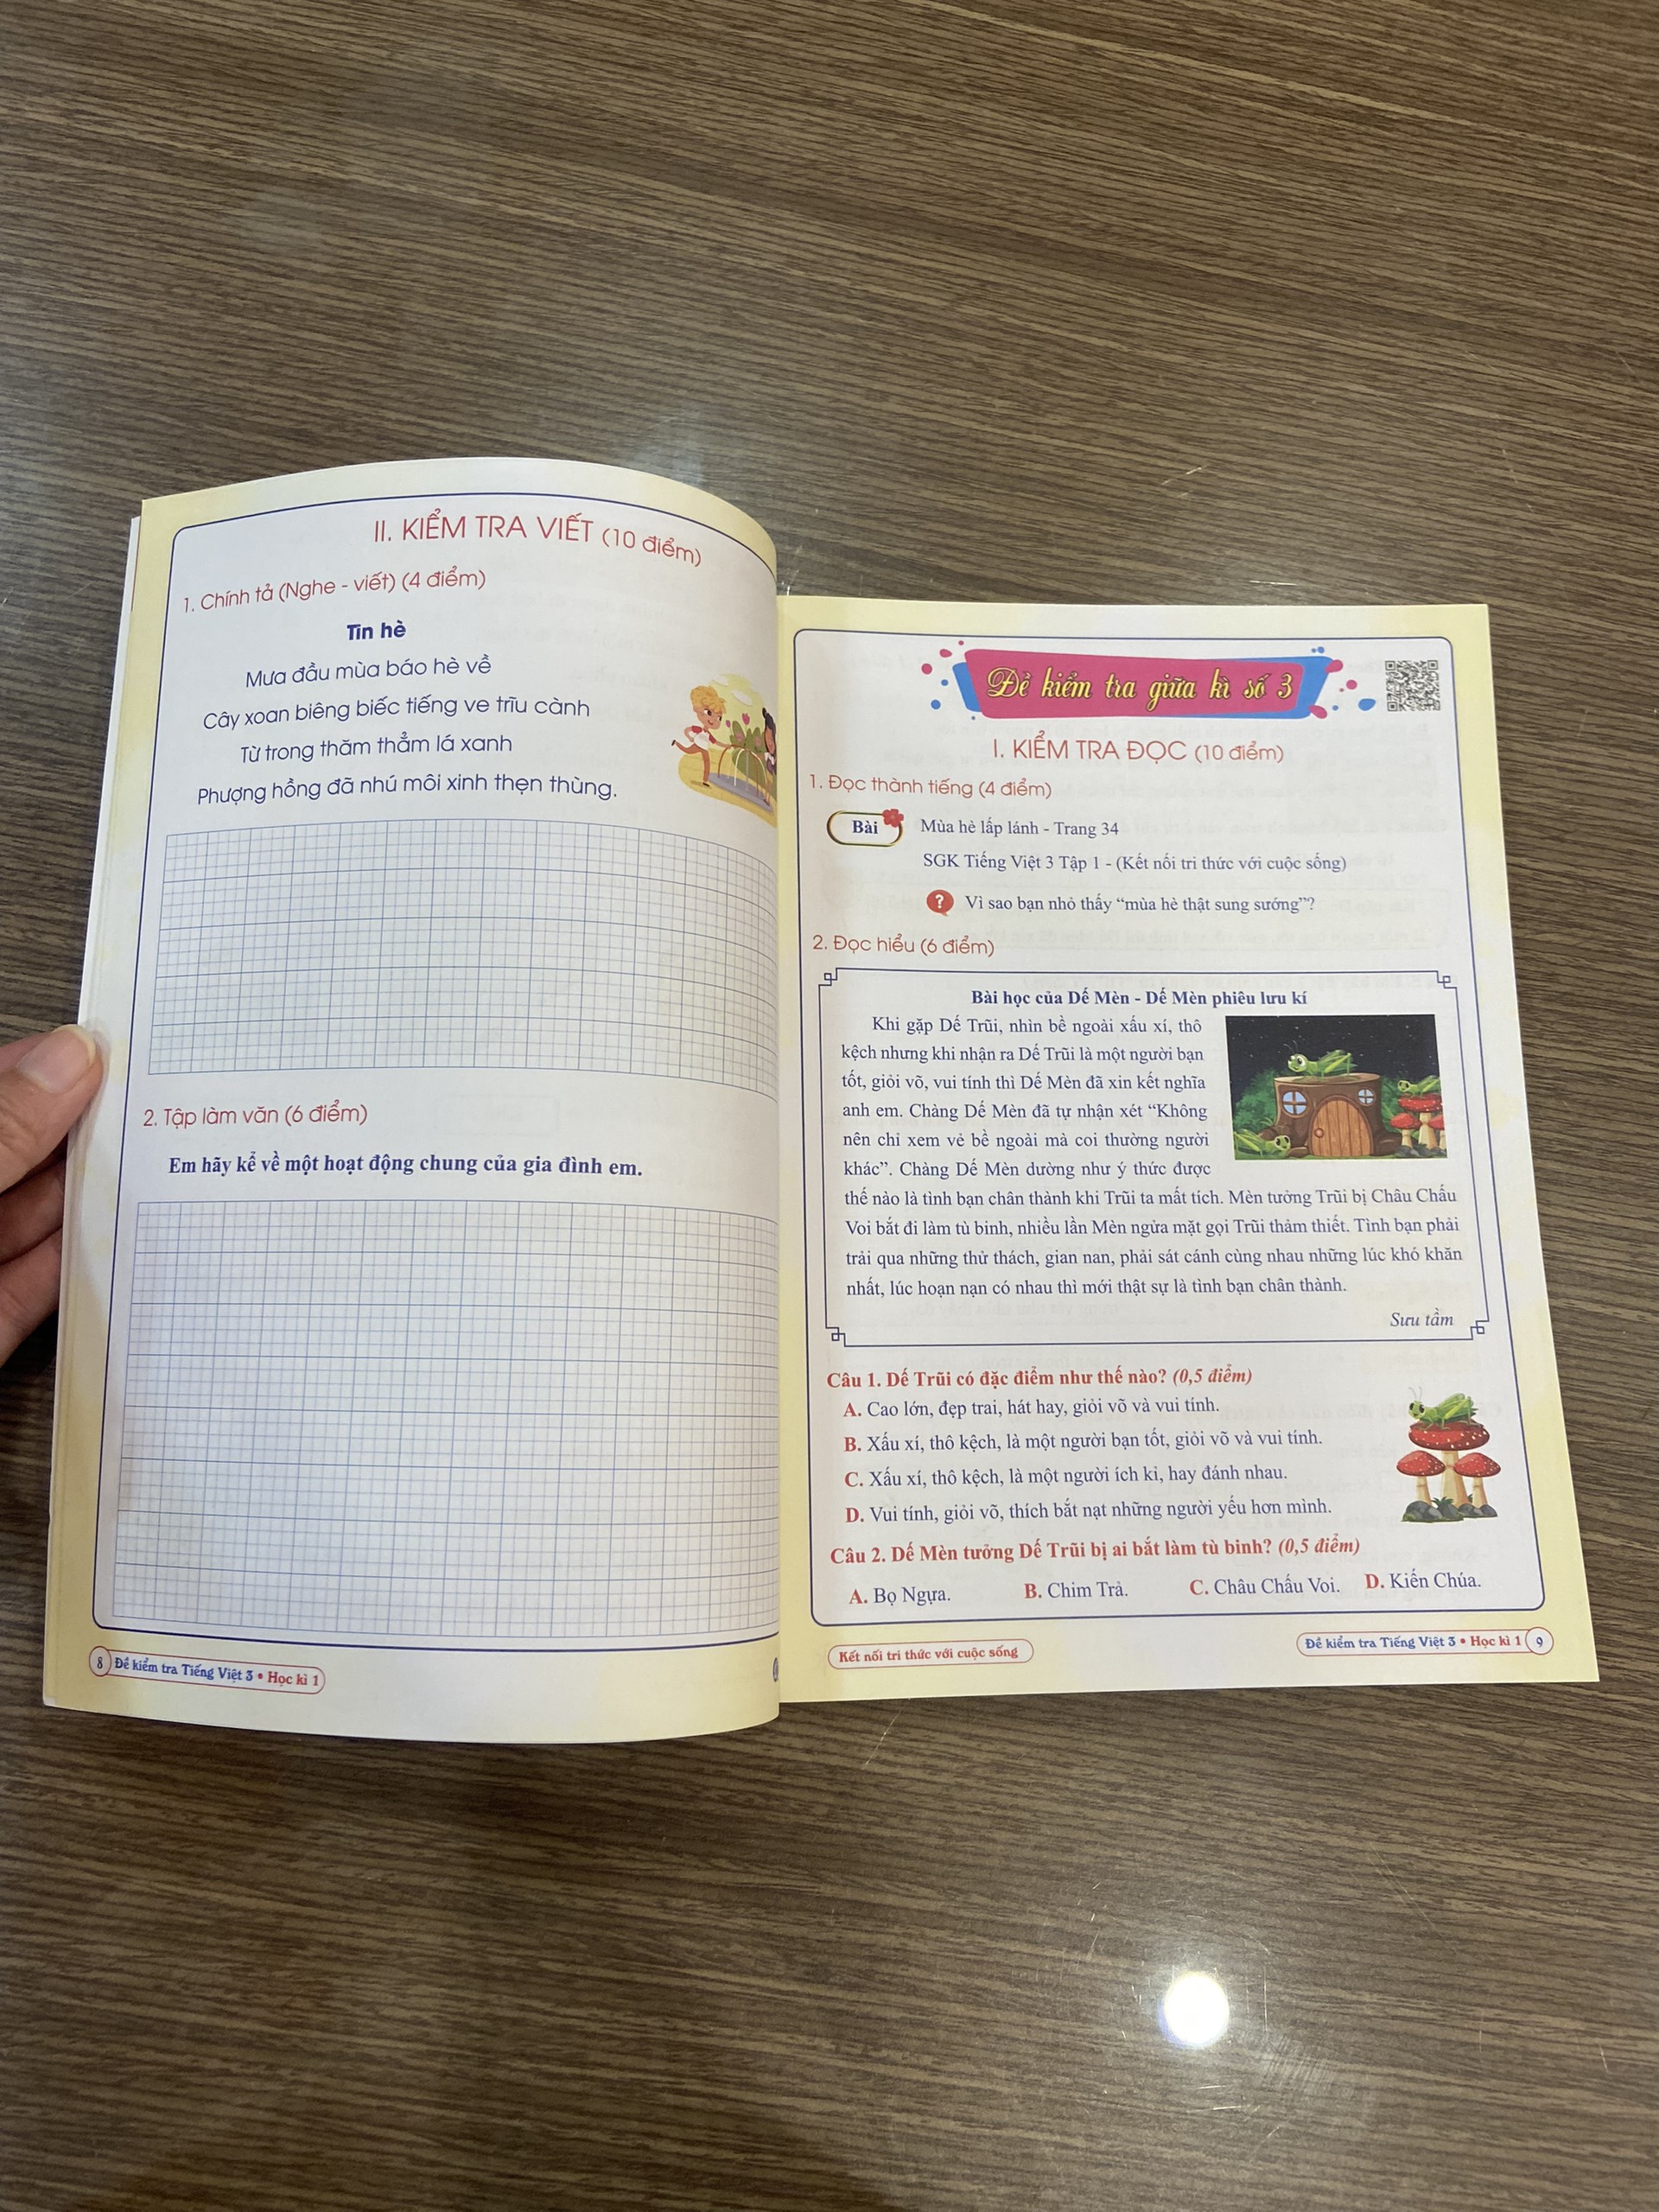 II. KIỂM TRA VIẾT (10 điểm)
1. Chính tả (Nghe - viết) (4 điểm)
Tin hè
Mưa đầu mùa báo hè về
Cây xoan biêng biếc tiếng ve trĩu cành
Từ trong thăm thẳm lá xanh
Phượng hồng đã nhú môi xinh thẹn thùng.
2. Tập làm văn (6 điểm)
Em hãy kể về một hoạt động chung của gia đình em.
8 Đề kiểm tra Tiếng Việt 3 • Học kì 1
Đề kiểm tra giữa kì số 3
I. KIỂM TRA ĐỌC (10 điểm)
1. Đọc thành tiếng (4 điểm)
Bài Mùa hè lấp lánh - Trang 34
SGK Tiếng Việt 3 Tập 1 - (Kết nối tri thức với cuộc sống)
? Vì sao bạn nhỏ thấy “mùa hè thật sung sướng”?
2. Đọc hiểu (6 điểm)
Bài học của Dế Mèn - Dế Mèn phiêu lưu kí
Khi gặp Dế Trũi, nhìn bề ngoài xấu xí, thô
kệch nhưng khi nhận ra Dế Trũi là một người bạn
tốt, giỏi võ, vui tính thì Dế Mèn đã xin kết nghĩa
anh em. Chàng Dế Mèn đã tự nhận xét “Không
nên chỉ xem vẻ bề ngoài mà coi thường người
khác”. Chàng Dế Mèn dường như ý thức được
thế nào là tình bạn chân thành khi Trũi ta mất tích. Mèn tưởng Trũi bị Châu Chấu
Voi bắt đi làm tù binh, nhiều lần Mèn ngửa mặt gọi Trũi thảm thiết. Tình bạn phải
trải qua những thử thách, gian nan, phải sát cánh cùng nhau những lúc khó khăn
nhất, lúc hoạn nạn có nhau thì mới thật sự là tình bạn chân thành.
Sưu tầm
Câu 1. Dế Trũi có đặc điểm như thế nào? (0,5 điểm)
A. Cao lớn, đẹp trai, hát hay, giỏi võ và vui tính.
B. Xấu xí, thô kệch, là một người bạn tốt, giỏi võ và vui tính.
C. Xấu xí, thô kệch, là một người ích kỉ, hay đánh nhau.
D. Vui tính, giỏi võ, thích bắt nạt những người yếu hơn mình.
Câu 2. Dế Mèn tưởng Dế Trũi bị ai bắt làm tù binh? (0,5 điểm)
A. Bọ Ngựa. B. Chim Trả. C. Châu Chấu Voi. D. Kiến Chúa.
Kết nối tri thức với cuộc sống
Đề kiểm tra Tiếng Việt 3 • Học kì 1 9